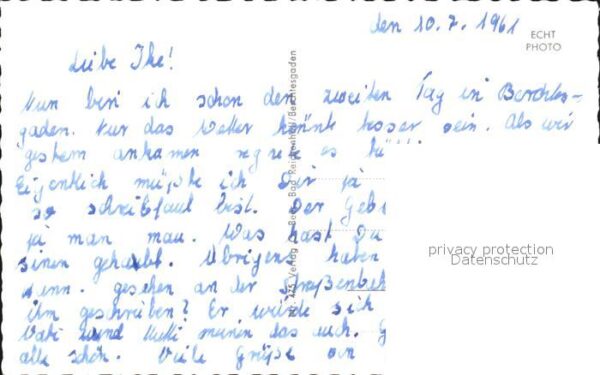 den 10.7.1961
ECHT
PHOTO
Liebe Ike!
Nun bin ich schon den zweiten Tag in Berchtes-
gaden. Nur das Wetter könnte besser sein. Als wir
gestern ankamen regnete es
Eigentlich müßte ich Dir ja
so schreibfaul bist. Der
ja man mau. Was hast Du
gehabt. Übrigens haben
wenn. gesehen an der
ihm geschrieben? Er würde sich
Vati und Mutti meinen das auch.
alle schön. Viele Grüße von
Verlag Bad Reichenhall/Berchtesgaden
privacy protection
Datenschutz